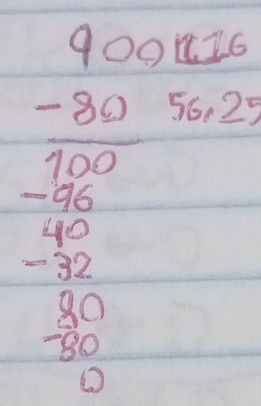 900 16
-80 56,25
100
-96
40
-32
80
-80
0